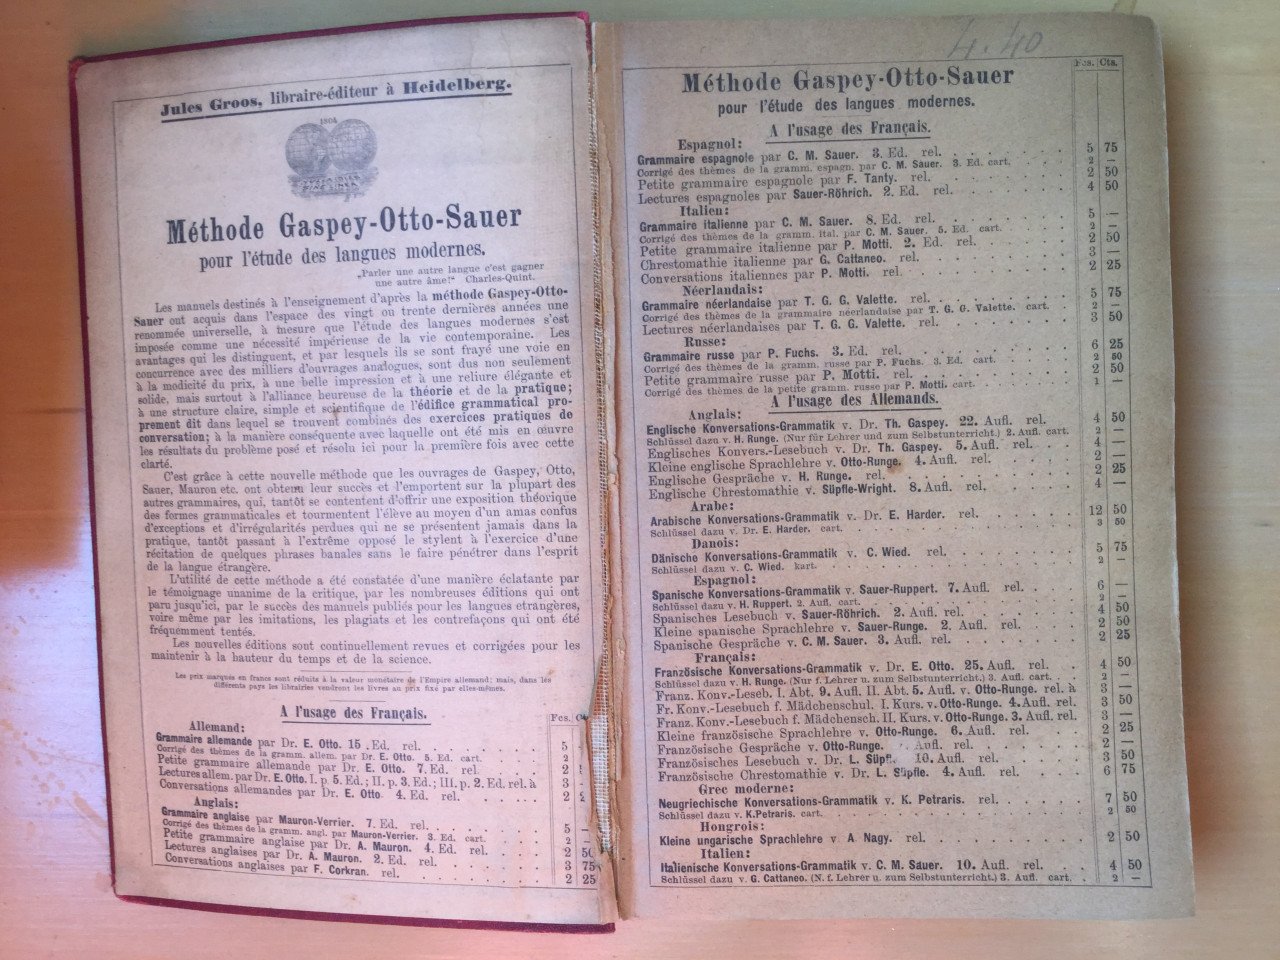 Jules Groos, libraire-éditeur à Heidelberg.
1804
Méthode Gaspey-Otto-Sauer
pour l'étude des langues modernes.
„Parler une autre langue c'est gagner
une autre âme!“ Charles-Quint.
Les manuels destinés à l'enseignement d'après la méthode Gaspey-Otto-
Sauer ont acquis dans l'espace des vingt ou trente dernières années une
renommée universelle, à mesure que l'étude des langues modernes s'est
imposée comme une nécessité impérieuse de la vie contemporaine. Les
avantages qui les distinguent, et par lesquels ils se sont frayé une voie en
concurrence avec des milliers d'ouvrages analogues, sont dus non seulement
à la modicité du prix, à une belle impression et à une reliure élégante et
solide, mais surtout à l'alliance heureuse de la théorie et de la pratique;
à une structure claire, simple et scientifique de l'édifice grammatical pro-
prement dit dans lequel se trouvent combinés des exercices pratiques de
conversation; à la manière conséquente avec laquelle ont été mis en œuvre
les résultats du problème posé et résolu ici pour la première fois avec cette
clarté.
C'est grâce à cette nouvelle méthode que les ouvrages de Gaspey, Otto,
Sauer, Mauron etc. ont obtenu leur succès et l'emportent sur la plupart des
autres grammaires, qui, tantôt se contentent d'offrir une exposition théorique
des formes grammaticales et tourmentent l'élève au moyen d'un amas confus
d'exceptions et d'irrégularités perdues qui ne se présentent jamais dans la
pratique, tantôt passant à l'extrême opposé le stylent à l'exercice d'une
récitation de quelques phrases banales sans le faire pénétrer dans l'esprit
de la langue étrangère.
L'utilité de cette méthode a été constatée d'une manière éclatante par
le témoignage unanime de la critique, par les nombreuses éditions qui ont
paru jusqu'ici, par le succès des manuels publiés pour les langues etrangères,
voire même par les imitations, les plagiats et les contrefaçons qui ont été
fréquemment tentés.
Les nouvelles éditions sont continuellement revues et corrigées pour les
maintenir à la hauteur du temps et de la science.
Les prix marqués en francs sont réduits à la valeur monétaire de l'Empire allemand; mais, dans les
différents pays les librairies vendront les livres au prix fixé par elles-mêmes.
A l'usage des Français.
Fcs.
Allemand:
Grammaire allemande par Dr. E. Otto. 15. Ed. rel. 5
Corrigé des thèmes de la gramm. allem. par Dr. E. Otto. 5. Ed. cart. 2
Petite grammaire allemande par Dr. E. Otto. 7. Ed. rel. 2
Lectures allem. par Dr. E. Otto. I. p. 5. Ed.; II. p. 3. Ed.; III. p. 2. Ed. rel. à 3 —
Conversations allemandes par Dr. E. Otto 4. Ed. rel. 2
Anglais:
Grammaire anglaise par Mauron-Verrier. 7. Ed. rel. 5 —
Corrigé des thèmes de la gramm. angl. par Mauron-Verrier. 3. Ed. cart. 2 —
Petite grammaire anglaise par Dr. A. Mauron. 4. Ed. rel. 2 50
Lectures anglaises par Dr. A. Mauron. 2. Ed. rel. 3 75
Conversations anglaises par F. Corkran. rel. 2 25
4.40
Fcs. Cts.
Méthode Gaspey-Otto-Sauer
pour l'étude des langues modernes.
A l'usage des Français.
Espagnol:
Grammaire espagnole par C. M. Sauer. 3. Ed. rel. 5 75
Corrigé des thèmes de la gramm. espagn. par C. M. Sauer. 3. Ed. cart. 2 —
Petite grammaire espagnole par F. Tanty. rel. 2 50
Lectures espagnoles par Sauer-Röhrich. 2. Ed. rel. 4 50
Italien:
Grammaire italienne par C. M. Sauer. 8. Ed. rel. 5 —
Corrigé des thèmes de la gramm. ital. par C. M. Sauer. 5. Ed. cart. 2 —
Petite grammaire italienne par P. Motti. 2. Ed. rel. 2 50
Chrestomathie italienne par G. Cattaneo. rel. 3 —
Conversations italiennes par P. Motti. rel. 2 25
Néerlandais:
Grammaire néerlandaise par T. G. G. Valette. rel. 5 75
Corrigé des thèmes de la grammaire néerlandaise par T. G. G. Valette. cart. 2 —
Lectures néerlandaises par T. G. G. Valette. rel. 3 50
Russe:
Grammaire russe par P. Fuchs. 3. Ed. rel. 6 25
Corrigé des thèmes de la gramm. russe par P. Fuchs. 3. Ed. cart. 2 50
Petite grammaire russe par P. Motti. rel. 2 50
Corrigé des thèmes de la petite gramm. russe par P. Motti. cart. 1 —
A l'usage des Allemands.
Anglais:
Englische Konversations-Grammatik v. Dr. Th. Gaspey. 22. Aufl. rel. 4 50
Schlüssel dazu v. H. Runge. (Nur für Lehrer und zum Selbstunterricht.) 2. Aufl. cart. 2 —
Englisches Konvers.-Lesebuch v. Dr. Th. Gaspey. 5. Aufl. rel. 4 —
Kleine englische Sprachlehre v. Otto-Runge. 4. Aufl. rel. 2 —
Englische Gespräche v. H. Runge. rel. 2 25
Englische Chrestomathie v. Süpfle-Wright. 8. Aufl. rel. 4 —
Arabe:
Arabische Konversations-Grammatik v. Dr. E. Harder. rel. 12 50
Schlüssel dazu v. Dr. E. Harder. cart. 3 50
Danois:
Dänische Konversations-Grammatik v. C. Wied. rel. 5 75
Schlüssel dazu v. C. Wied. kart. 2 —
Espagnol:
Spanische Konversations-Grammatik v. Sauer-Ruppert. 7. Aufl. rel. 6 —
Schlüssel dazu v. H. Ruppert. 2. Aufl. cart. 2 —
Spanisches Lesebuch v. Sauer-Röhrich. 2. Aufl. rel. 4 50
Kleine spanische Sprachlehre v. Sauer-Runge. 2. Aufl. rel. 2 50
Spanische Gespräche v. C. M. Sauer. 3. Aufl. rel. 2 25
Français:
Französische Konversations-Grammatik v. Dr. E. Otto. 25. Aufl. rel. 4 50
Schlüssel dazu v. H. Runge. (Nur f. Lehrer u. zum Selbstunterricht.) 3. Aufl. cart. 2 —
Franz. Konv.-Leseb. I. Abt. 9. Aufl. II. Abt. 5. Aufl. v. Otto-Runge. rel. à 3 —
Fr. Konv.-Lesebuch f. Mädchenschul. I. Kurs. v. Otto-Runge. 4. Aufl. rel. 3 50
Franz. Konv.-Lesebuch f. Mädchensch. II. Kurs. v. Otto-Runge. 3. Aufl. rel. 3 —
Kleine französische Sprachlehre v. Otto-Runge. 6. Aufl. rel. 2 25
Französische Gespräche v. Otto-Runge. Aufl. rel. 2 —
Französisches Lesebuch v. Dr. L. Süpfle. 10. Aufl. rel. 3 50
Französische Chrestomathie v. Dr. L. Süpfle. 4. Aufl. rel. 6 75
Grec moderne:
Neugriechische Konversations-Grammatik v. K. Petraris. rel. 7 50
Schlüssel dazu v. K. Petraris. cart. 2 50
Hongrois:
Kleine ungarische Sprachlehre v. A. Nagy. rel. 2 50
Italien:
Italienische Konversations-Grammatik v. C. M. Sauer. 10. Aufl. rel. 4 50
Schlüssel dazu v. G. Cattaneo. (N. f. Lehrer u. zum Selbstunterricht.) 3. Aufl. cart. 2 —